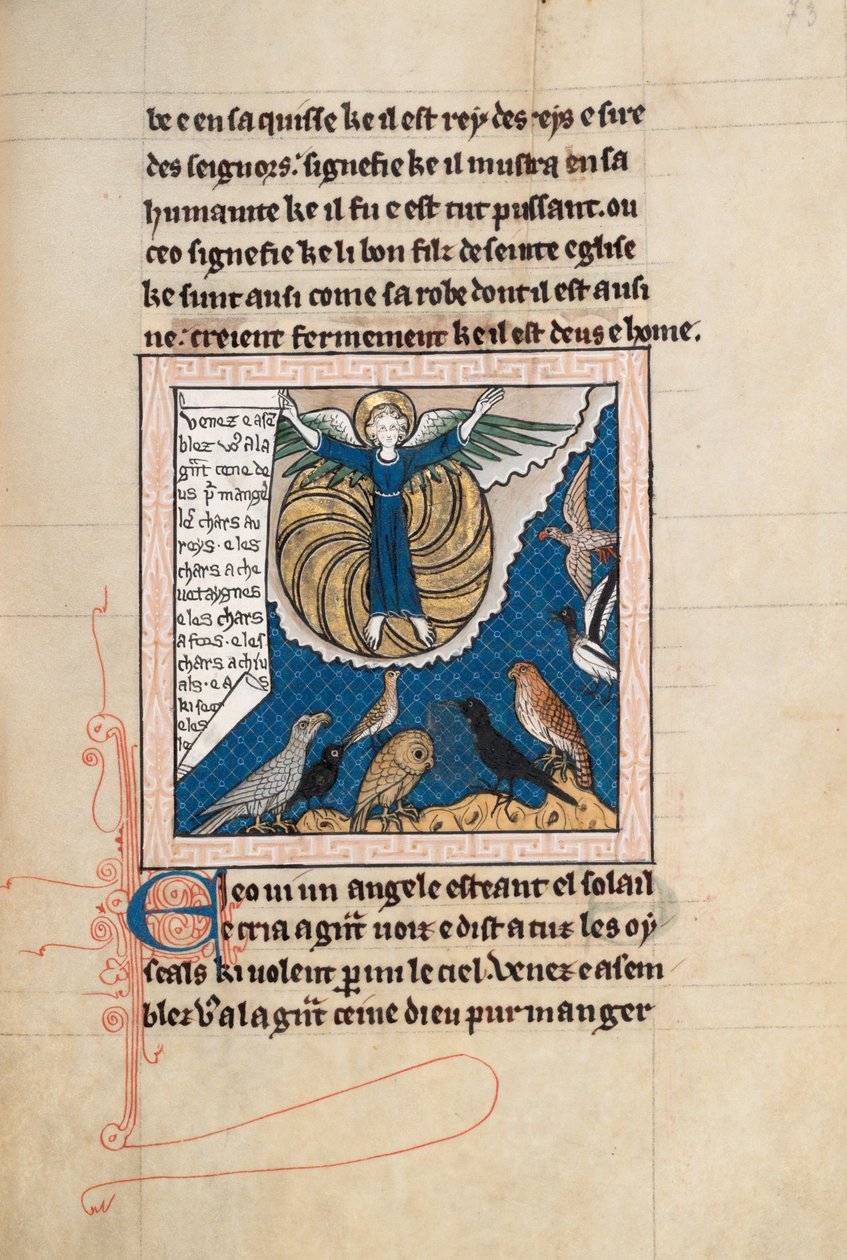 73
be e en sa quisse ke il est rey des reys e sire
des seignors: signefie ke il mustra en sa
humanite ke il fu e est tut pussant. ou
ceo signefie ke li bon filz de seinte eglise
ke sunt ausi come sa robe dont il est ausi
ne: creient fermement ke il est deus e home.
venez e asē
blez vꝰ a la
gūt cene de
us pʳ manger
les chars au
reys. e les
chars a che
uetaygnes
e les chars
a forz. e les
chars a chiu
als. e a
ki se
e les
le
E Jeo ui un angele esteant el solail
e cria a gūt uoiz e dist a tuz les oy
seals ki uolent ꝑ mi le ciel. Venez e asem
blez vꝰ a la gūt ceine dieu pur manger